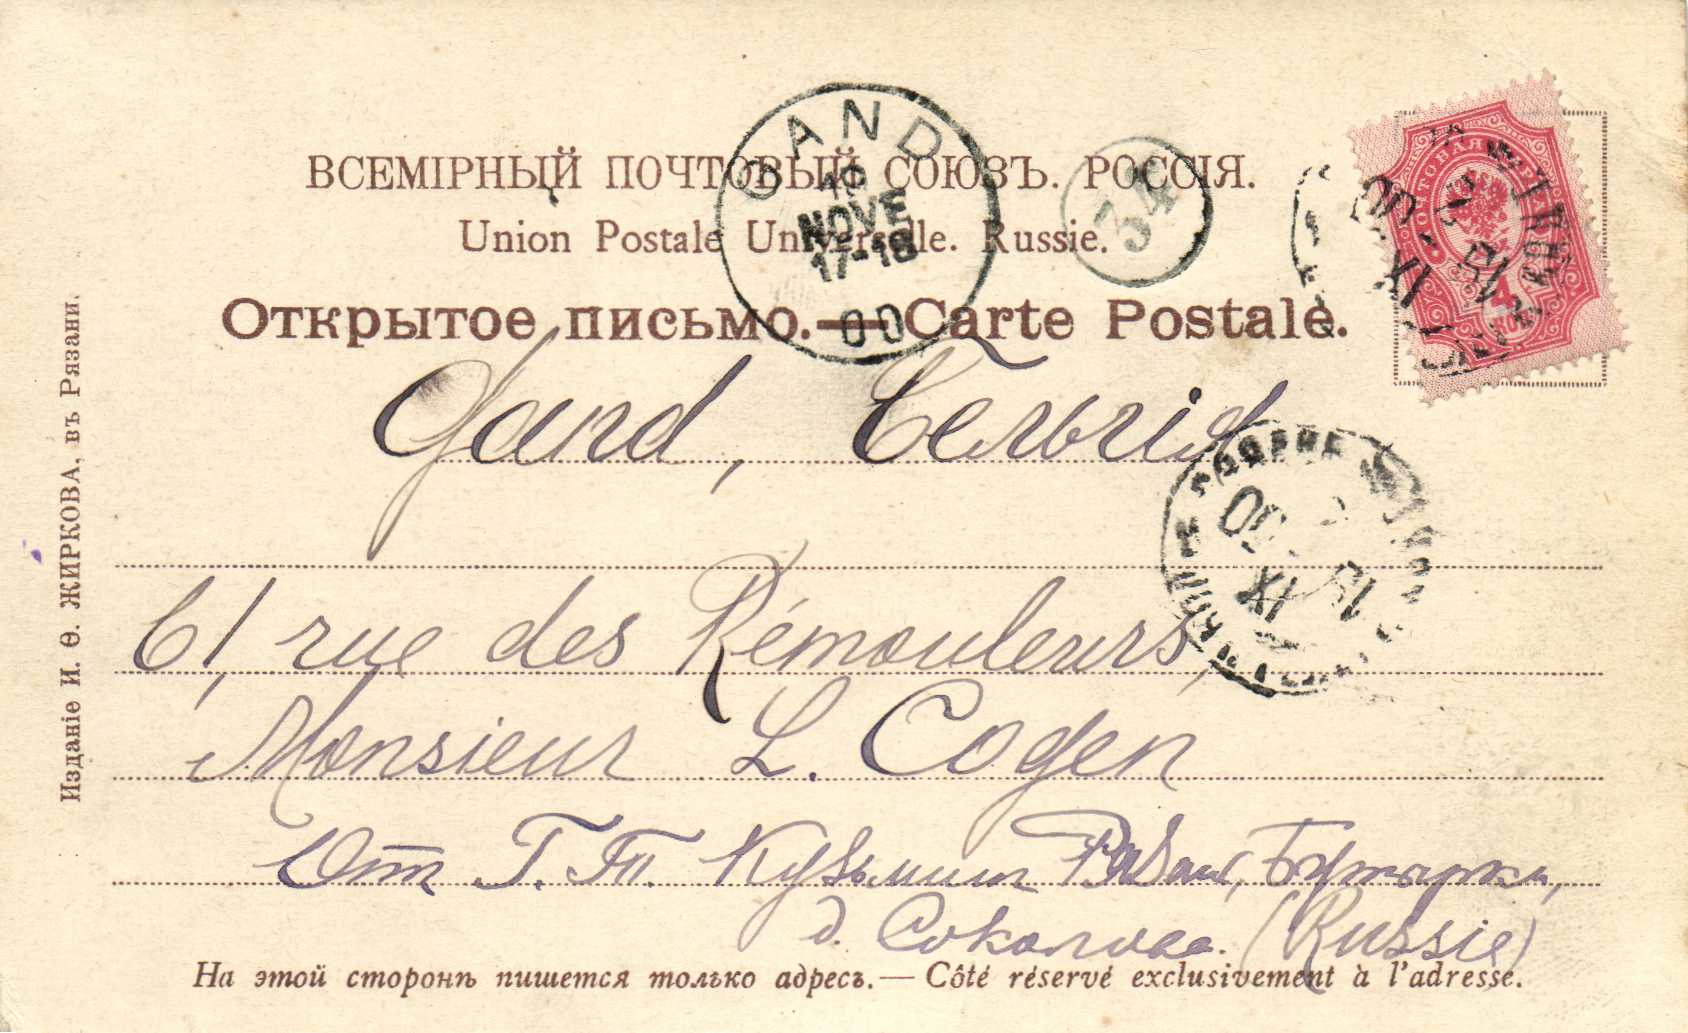 ВСЕМІРНЫЙ ПОЧТОВЫЙ СОЮЗЪ. РОССІЯ.
Union Postale Universelle. Russie.
Открытое письмо.—Carte Postale.
GAND
NOVE
17-18
00
34
Gand, Бельгія
61, rue des Rémouleurs,
Monsieur L. Cogen
От Г. П. Кузьмин Рязань, Бутырки,
д. Соколова. (Russie)
На этой сторонѣ пишется только адресъ.— Côté réservé exclusivement à l'adresse.
Изданіе И. Ѳ. ЖИРКОВА, въ Рязани.